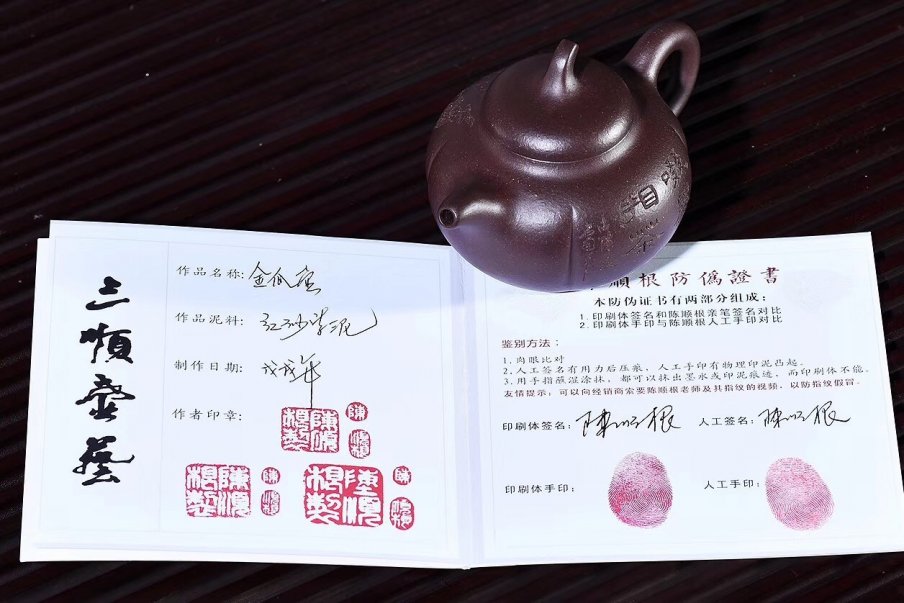 上顺壶艺
作品名称:金瓜壶
作品泥料:红砂紫泥
制作日期:戊戌年
作者印章:
陳順根製
陳
陳順根製
陳
陳順根製
陳
順根防偽證書
本防伪证书有两部分组成:
1.印刷体签名和陈顺根亲笔签名对比
2.印刷体手印与陈顺根人工手印对比
鉴别方法:
1.肉眼比对
2.人工签名有用力后压痕,人工手印有物理印泥凸起。
3.用手指蘸湿涂抹,都可以抹出墨水或印泥痕迹,而印刷体不能。
友情提示:可以向经销商索要陈顺根老师及其指纹的视频,以防指纹假冒。
印刷体签名:陳順根 人工签名:陳順根
印刷体手印: 人工手印: